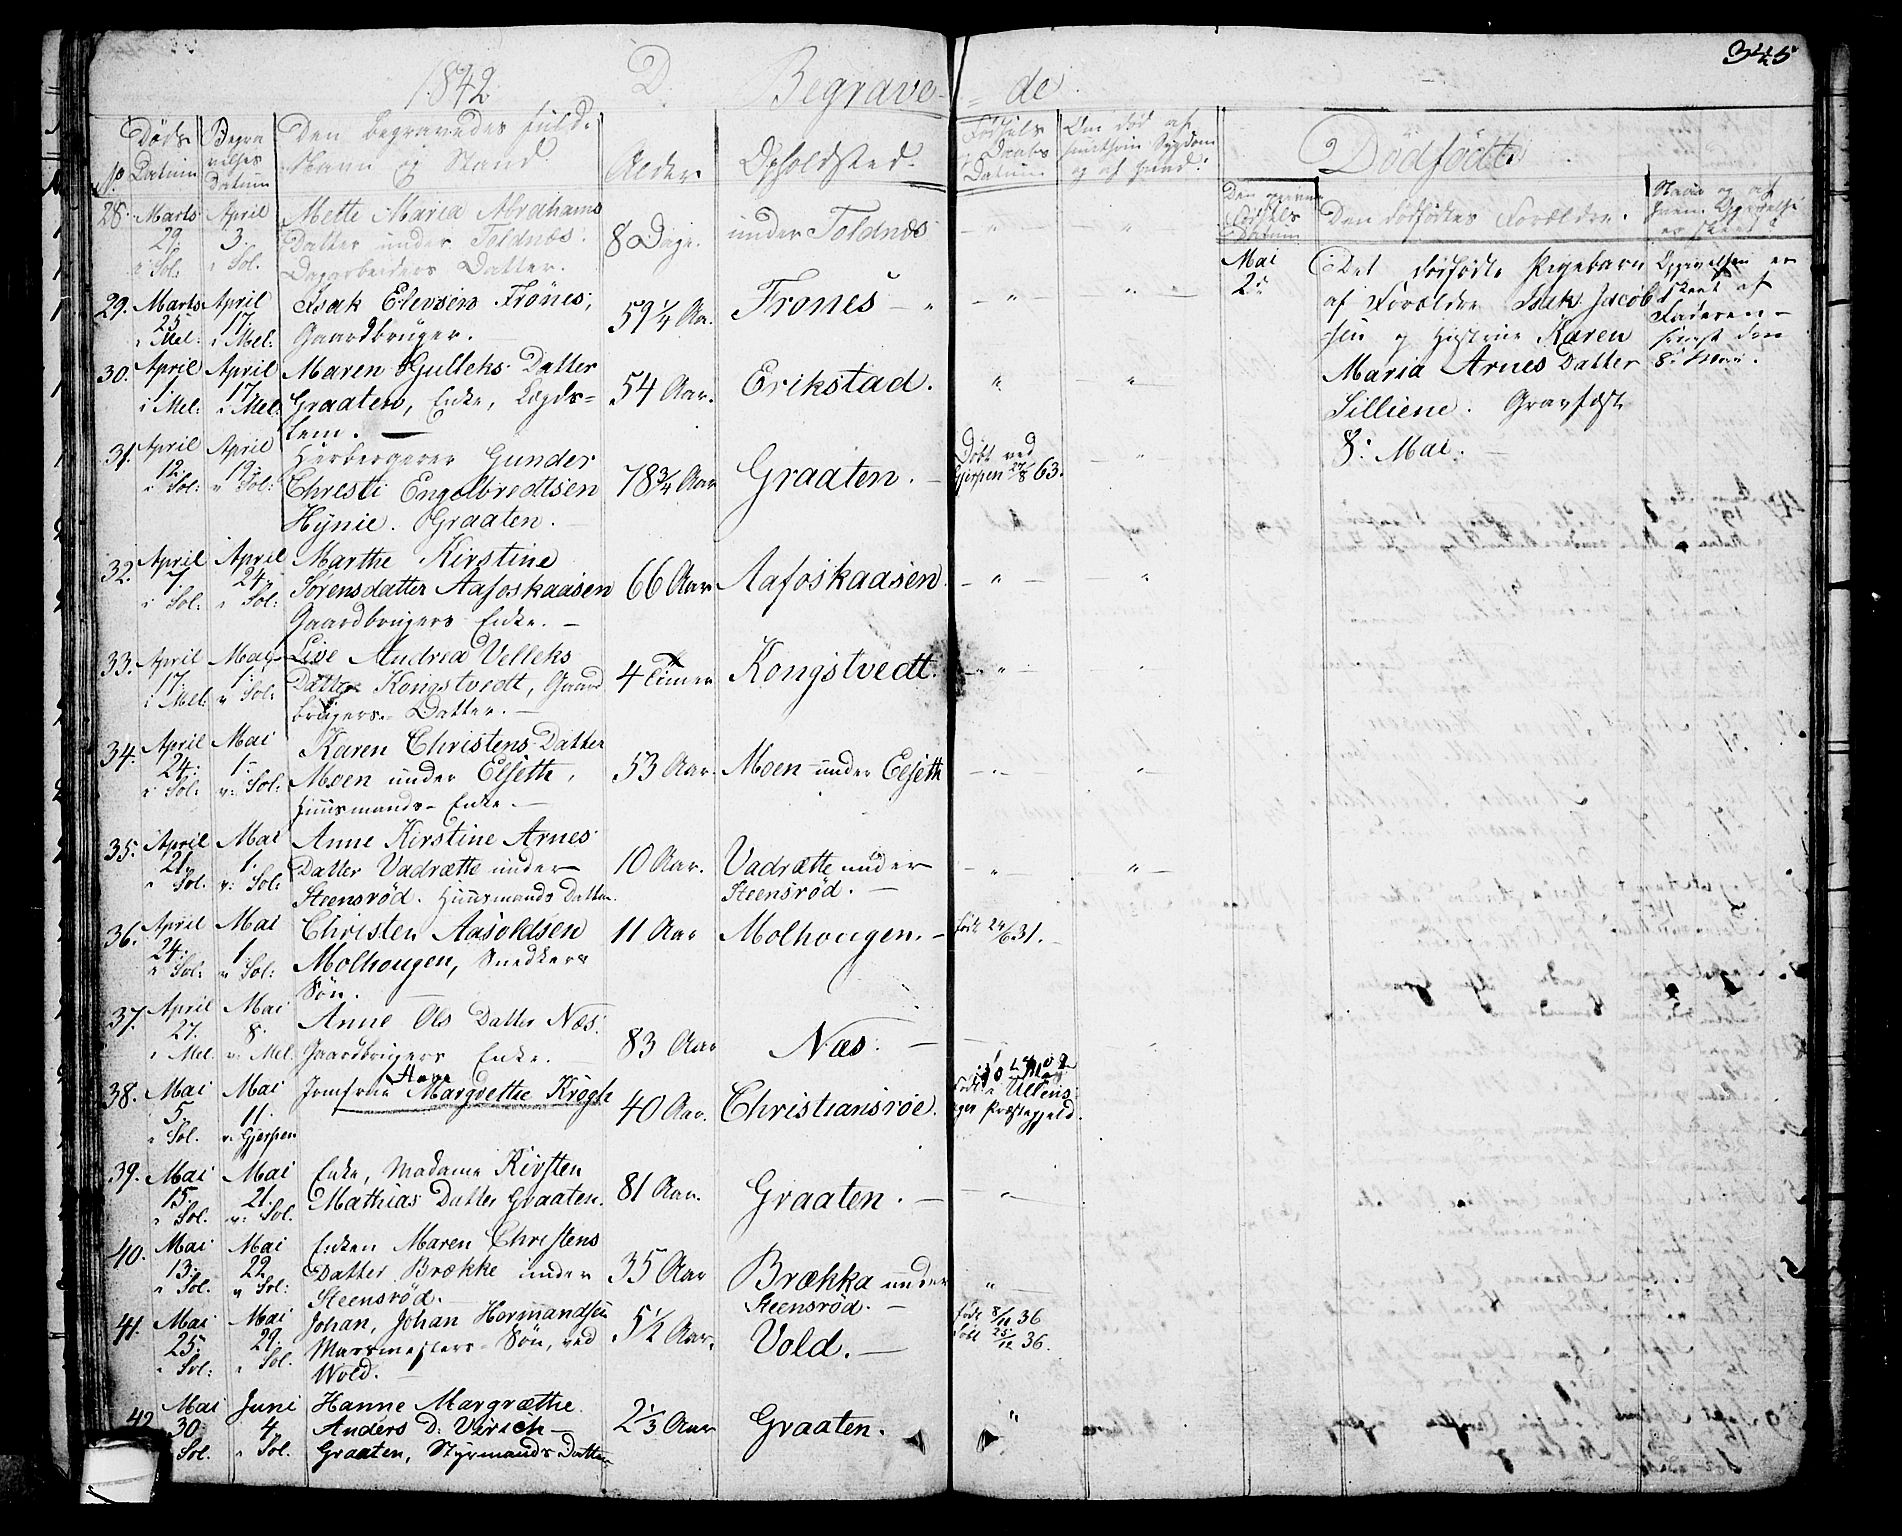 345
1842 D. Begrave- de.
No
Døds Datum
Begravelses Datum
Den begravedes fulde Navn og Stand.
Alder
Opholdsted.
Fødsels Daabs Datum
Om død af smitsom Sygdom og af hvad?
Dødfødte.
Den Fødsels Datum
Den dødfødtes Forældre.
28. Marts 29. i Sol: April 3. i Sol. Mette Maria Abrahams
Datter under Toldnæs.
Datter.
8 Dage. under Toldnæs
29. Marts 25. i Mel: April 17. i Mel: Isak Elevsen Frönes,
Gaardbruger.
59 1/4 Aar. Frones
30. April 1. i Mel: April 17. i Mel: Maren Gulleks Datter
Graaten, Enke, Lægds=
lem.
54 Aar. Erikstad.
31. April 12. i Sol: April 19. i Sol: Herbergerer Gunder
Christi Engelbredtsen
Hÿnie. Graaten.
78 3/4 Aar Graaten. Døbt ved Gjerpen 27/8 63.
32. April 7. i Sol: April 24. i Sol: Marthe Kirstine
Sørensdatter Aafoskaasen
Gaardbrugers Enke.
66 Aar Aafoskaasen
33. April 17. i Mel: Mai 1. v Sol: Live Andrea Velleks
Datter Kongstvedt, Gaard
brugers Datter.
4 Timer Kongstvedt.
34. April 24. i Sol: Mai 1. v: Sol: Karen Christens Datter
Moen under Elseth,
Huusmands Enke.
53 Aar. Moen under Elseth
35. April 21. i Sol. Mai 1. v: Sol: Anne Kirstine Arnes
Datter Vadrætte under
Steensrød. Huusmands Datter.
10 Aar. Vadrætte under
Steensrød.
36. April 24. i Sol: Mai 1. v Sol: Christen Aasoldsen
Molhougen, Snedkers
Søn.
11 Aar Molhougen. født 24/6 31.
37. April 27. i Mel. Mai 8. v: Mel. Anne Ols Datter Næs.
Gaardbrugers Enke.
83 Aar Næs.
38. Mai 5. i Sol. Mai 11. v. Gjerpen Jomfrue Margrethe Krogh
40 Aar. Christiansröe. født i Ullens
ager Præstegjeld.
39. Mai 15. i Sol. Mai 21. v: Sol. Enke, Madame Kirsten
Mathias Datter Graaten.
81 Aar. Graaten.
40. Mai 13. i Sol. Mai 22. v Sol: Enken Maren Christens
Datter Brække under
Steensrød.
35 Aar Brækka under
Steensrød.
41. Mai 25. i Sol: Mai 29. i Sol. Johan, Johan Hermandsen
Søn, ved
Wold.
5 1/2 Aar. Vold. født 8/11 36
døbt 25/12 36.
42 Mai 30. Sol. Juni 4. i Sol. Hanne Margræthe
Anders D: Ulrich
Graaten, Styrmands Datter
2 1/3 Aar Graaten.
Mai 2. Det dødfødte Pigebarn
af Forældre Isak Jacob
sen og Hustrue Karen
Maria Arnes Datter
Silliene. Gravfæst
8. Mai.
Opgivelsen er
skeet af
Faderen
den
8. Mai.